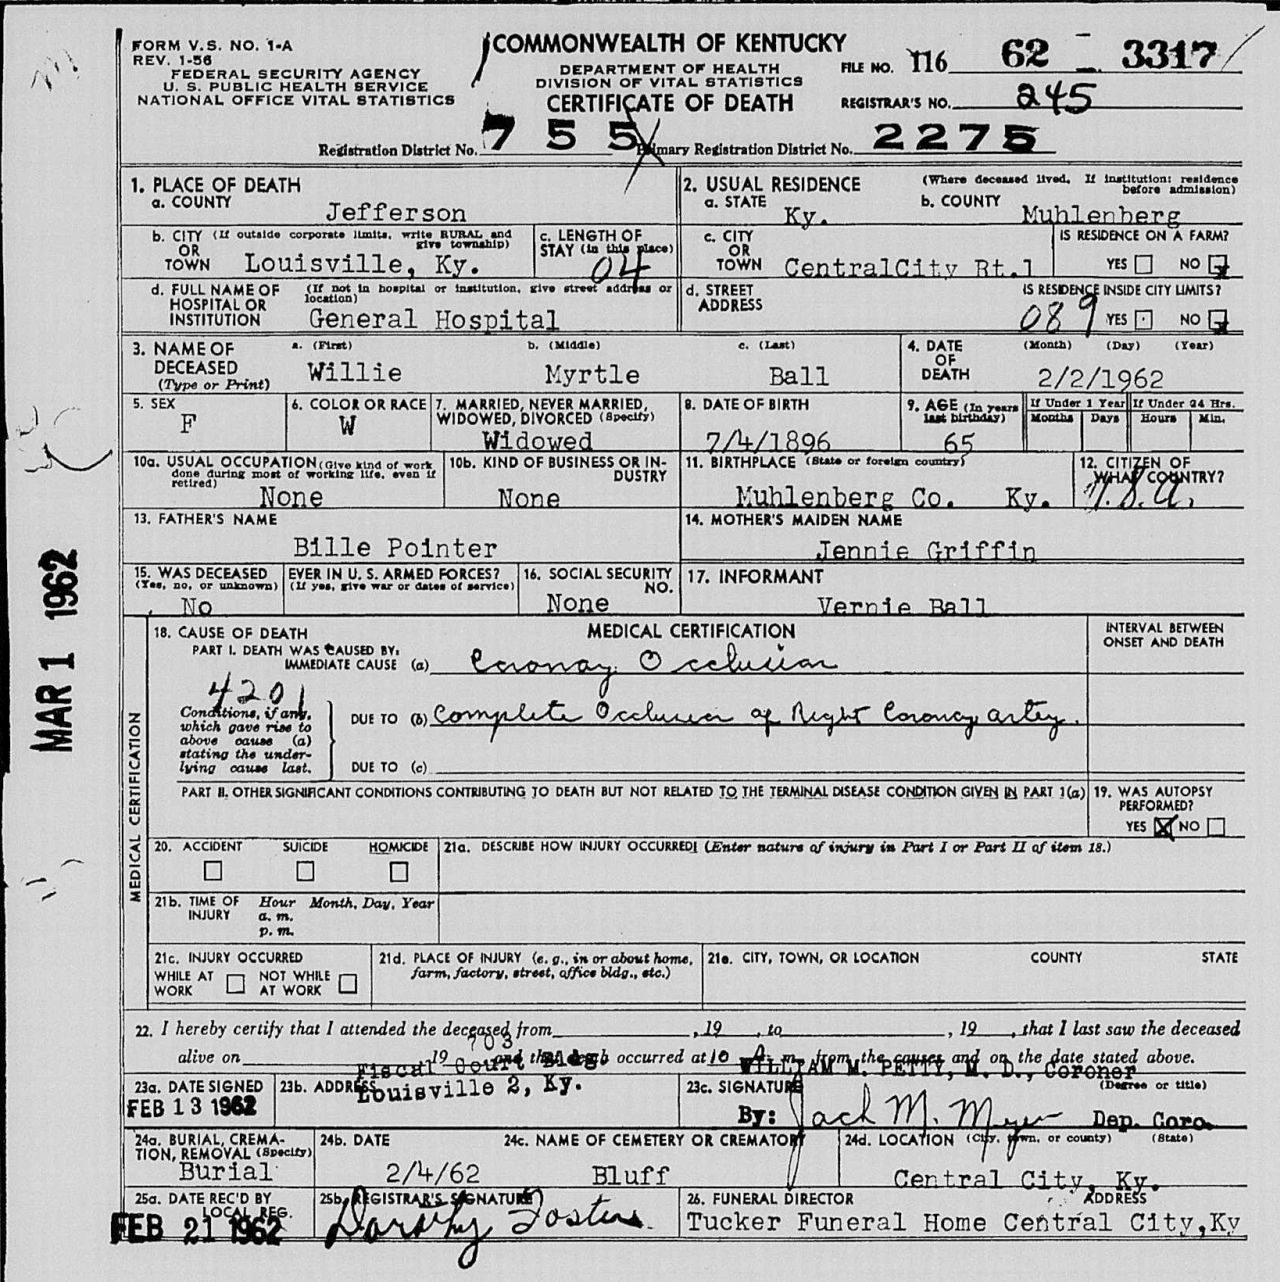 FORM V.S. NO. 1-A
REV. 1-56
FEDERAL SECURITY AGENCY
U. S. PUBLIC HEALTH SERVICE
NATIONAL OFFICE VITAL STATISTICS
COMMONWEALTH OF KENTUCKY
DEPARTMENT OF HEALTH
DIVISION OF VITAL STATISTICS
CERTIFICATE OF DEATH
FILE NO. 116 62 - 3317
REGISTRAR'S NO. 245
Registration District No. 755 Primary Registration District No. 2275
1. PLACE OF DEATH
a. COUNTY
Jefferson
2. USUAL RESIDENCE (Where deceased lived. If institution: residence before admission)
a. STATE Ky. b. COUNTY Muhlenberg
b. CITY (If outside corporate limits, write RURAL and give township)
OR
TOWN Louisville, Ky.
c. LENGTH OF STAY (in this place)
04
c. CITY
OR
TOWN CentralCity Rt.1
IS RESIDENCE ON A FARM?
YES NO x
d. FULL NAME OF HOSPITAL OR INSTITUTION (If not in hospital or institution, give street address or location)
General Hospital
d. STREET ADDRESS
089
IS RESIDENCE INSIDE CITY LIMITS?
YES NO x
3. NAME OF DECEASED (Type or Print)
a. (First) b. (Middle) c. (Last)
Willie Myrtle Ball
4. DATE OF DEATH (Month) (Day) (Year)
2/2/1962
5. SEX
F
6. COLOR OR RACE
W
7. MARRIED, NEVER MARRIED, WIDOWED, DIVORCED (Specify)
Widowed
8. DATE OF BIRTH
7/4/1896
9. AGE (In years last birthday)
65
If Under 1 Year If Under 24 Hrs.
Months Days Hours Min.
10a. USUAL OCCUPATION (Give kind of work done during most of working life, even if retired)
None
10b. KIND OF BUSINESS OR INDUSTRY
None
11. BIRTHPLACE (State or foreign country)
Muhlenberg Co. Ky.
12. CITIZEN OF WHAT COUNTRY?
U.S.A.
13. FATHER'S NAME
Bille Pointer
14. MOTHER'S MAIDEN NAME
Jennie Griffin
15. WAS DECEASED EVER IN U. S. ARMED FORCES?
(Yes, no, or unknown) (If yes, give war or dates of service)
No
16. SOCIAL SECURITY NO.
None
17. INFORMANT
Vernie Ball
MAR 1 1962
MEDICAL CERTIFICATION
18. CAUSE OF DEATH MEDICAL CERTIFICATION
INTERVAL BETWEEN ONSET AND DEATH
PART I. DEATH WAS CAUSED BY:
IMMEDIATE CAUSE (a) Coronay Occlusion
4201
Conditions, if any, which gave rise to above cause (a) stating the underlying cause last.
DUE TO (b) Complete Occlusion of Right Coronoy artey.
DUE TO (c)
PART II. OTHER SIGNIFICANT CONDITIONS CONTRIBUTING TO DEATH BUT NOT RELATED TO THE TERMINAL DISEASE CONDITION GIVEN IN PART 1(a)
19. WAS AUTOPSY PERFORMED?
YES X NO
20. ACCIDENT SUICIDE HOMICIDE
21a. DESCRIBE HOW INJURY OCCURRED! (Enter nature of injury in Part I or Part II of item 18.)
21b. TIME OF INJURY Hour Month, Day, Year
a. m.
p. m.
21c. INJURY OCCURRED
WHILE AT WORK NOT WHILE AT WORK
21d. PLACE OF INJURY (e. g., in or about home, farm, factory, street, office bldg., etc.)
21e. CITY, TOWN, OR LOCATION COUNTY STATE
22. I hereby certify that I attended the deceased from , 19 , to , 19 , that I last saw the deceased
alive on 19 and that death occurred at 10 A. m., from the causes and on the date stated above.
23a. DATE SIGNED
FEB 13 1962
23b. ADDRESS
703
Fiscal Court Bldg.
Louisville 2, Ky.
23c. SIGNATURE (Degree or title)
WILLIAM M. PETTY, M. D., Coroner
By: Jack M. Myer Dep. Coro.
24a. BURIAL, CREMATION, REMOVAL (Specify)
Burial
24b. DATE
2/4/62
24c. NAME OF CEMETERY OR CREMATORY
Bluff
24d. LOCATION (City, town, or county) (State)
Central City, Ky.
25a. DATE REC'D BY LOCAL REG.
FEB 21 1962
25b. REGISTRAR'S SIGNATURE
Dorothy Fosters
26. FUNERAL DIRECTOR ADDRESS
Tucker Funeral Home Central City,Ky